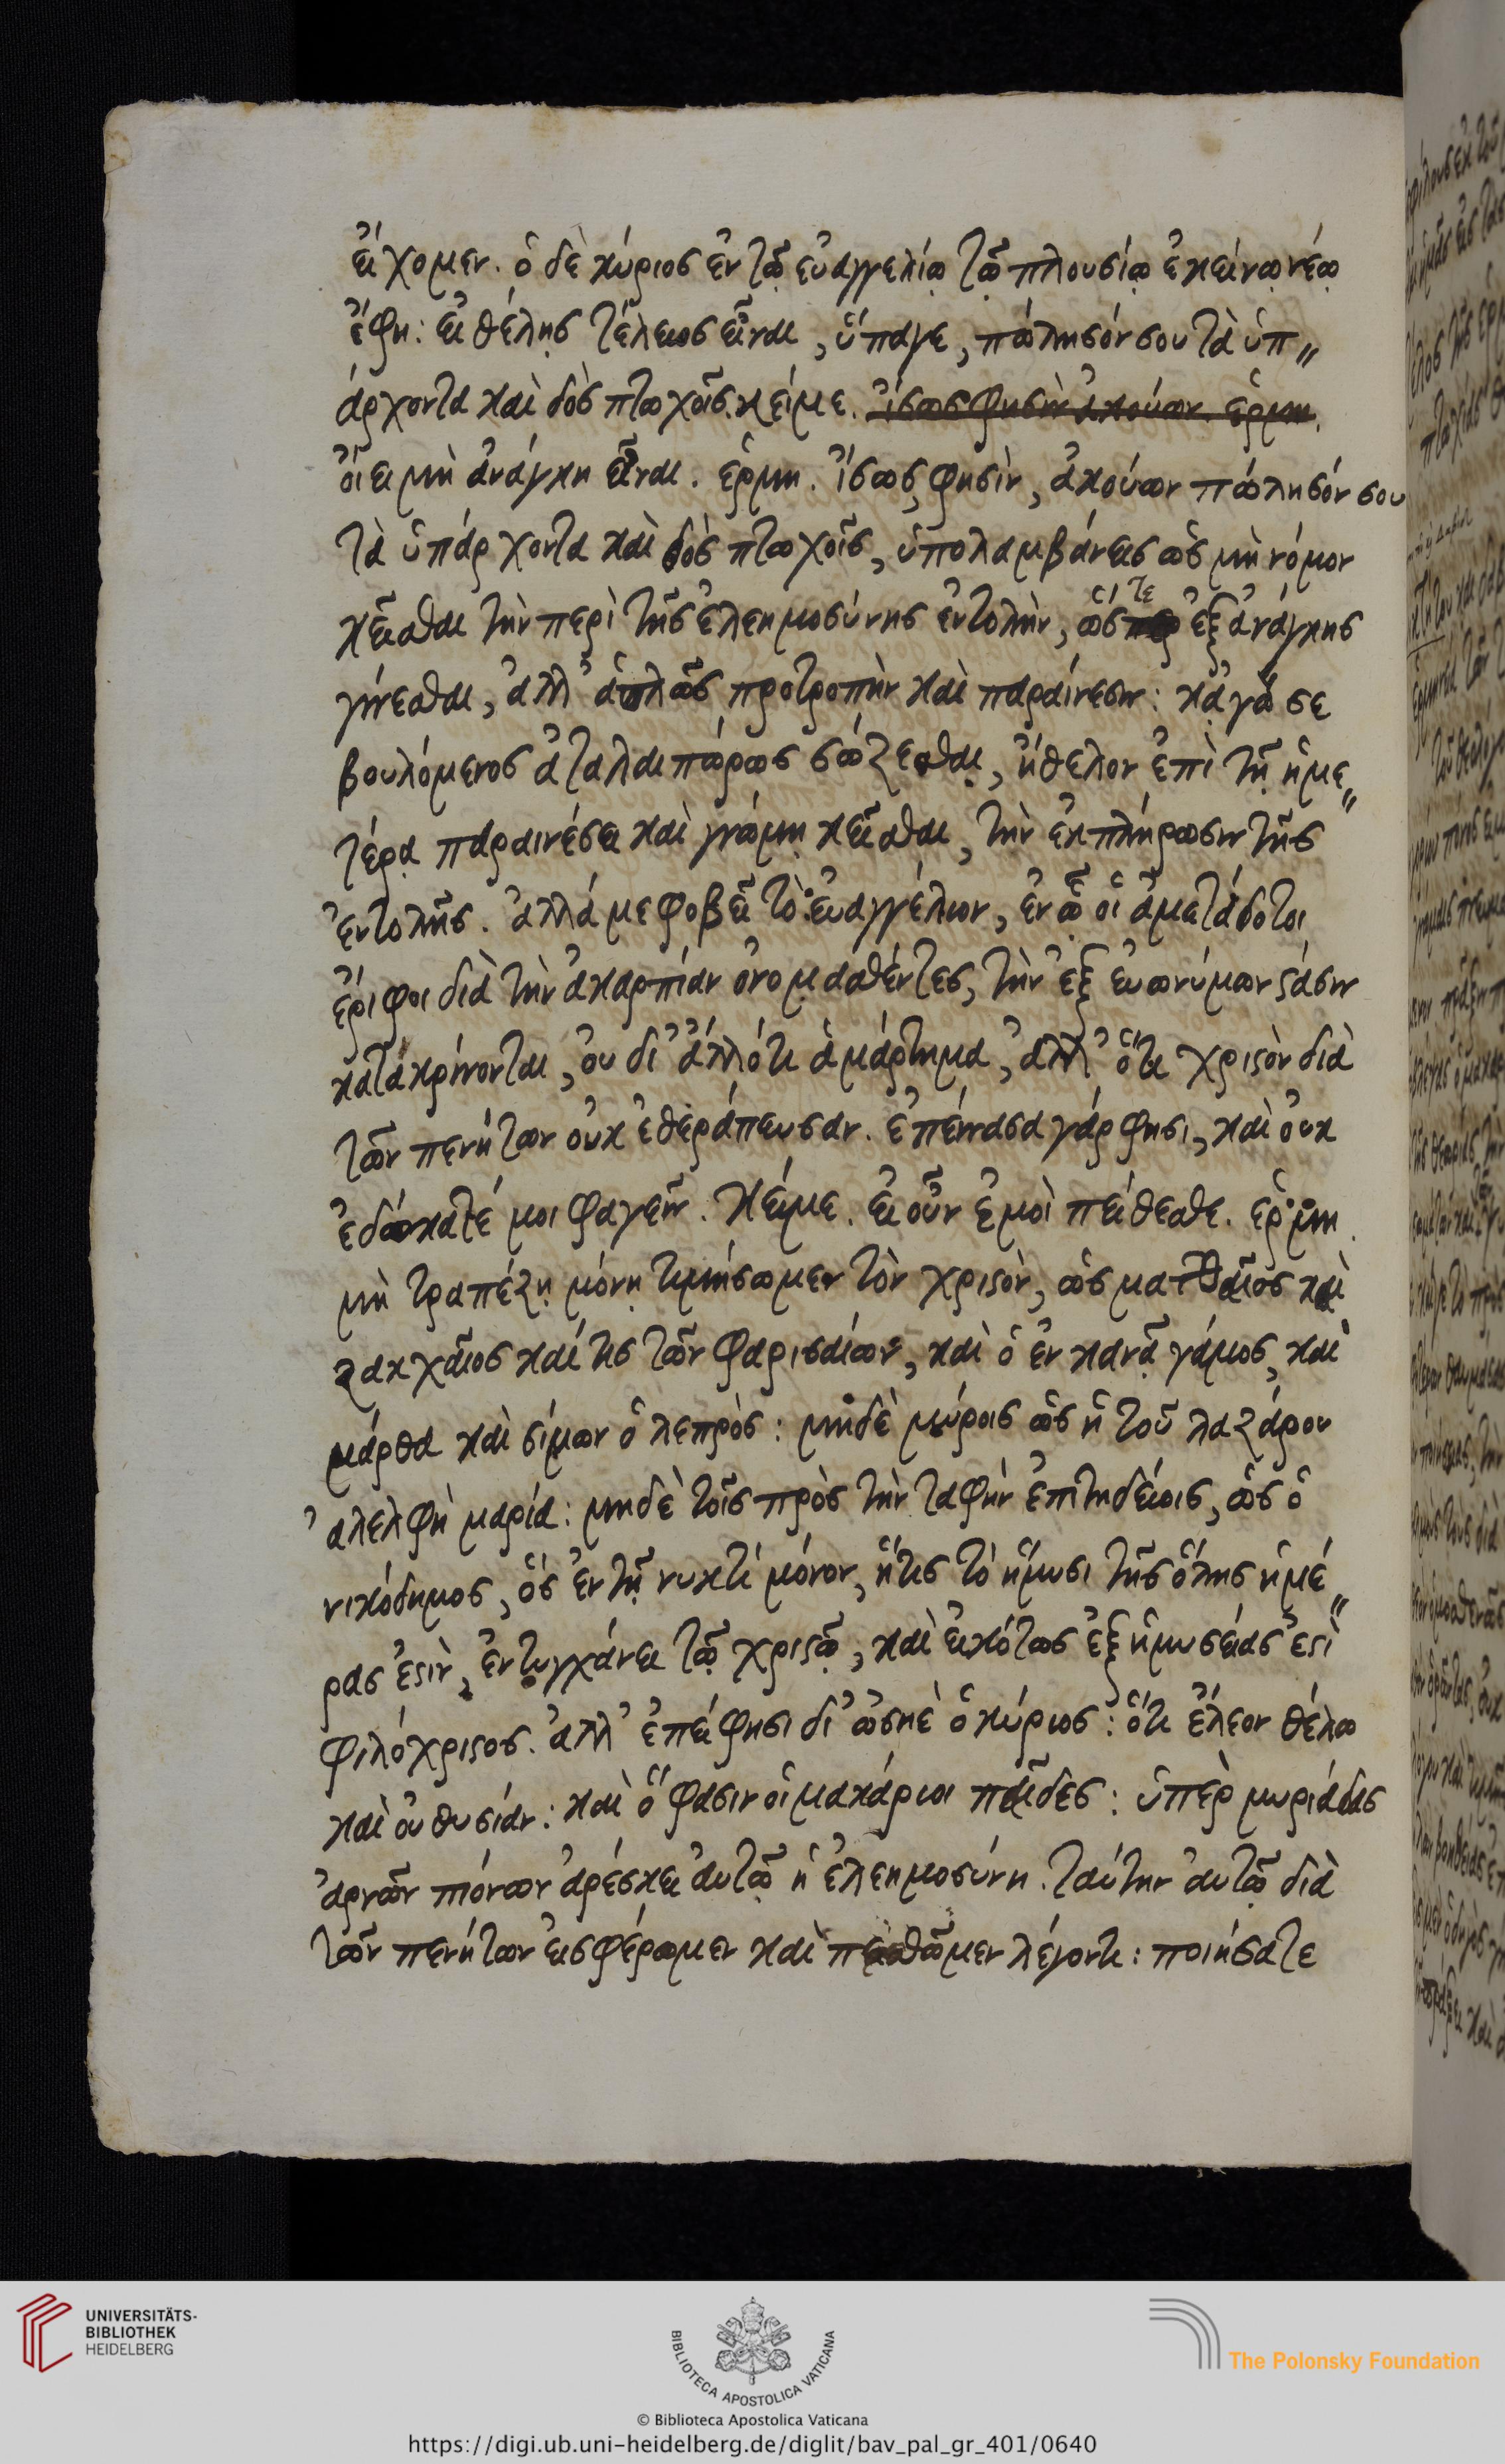 εἴχομεν. ὁ δὲ κύριος ἐν τῷ εὐαγγελίῳ τῷ πλουσίῳ ἐκείνῳ νέῳ
ἔφη: εἰ θέλῃς τέλειος εἶναι, ὕπαγε, πώλησόν σου τὰ ὑπ〃
άρχοντα καὶ δὸς πτωχοῖς. κείμε. ἴσως φησὶν ἀκούων. ἑρμη.
οἴει μὴ ἀνάγκη εἶναι. ἑρμη. ἴσως, φησὶν, ἀκούων πώλησόν σου
τὰ ὑπάρχοντα καὶ δὸς πτωχοῖς, ὑπολαμβάνεις ὡς μὴ νόμον
κεῖσθαι τὴν περὶ τῆς ἐλεημοσύνης ἐντολὴν, ὥστε ἐξ ἀνάγκης
γίνεσθαι, ἀλλ' ἁπλῶς προτροπὴν καὶ παραίνεσιν: κἀγώ σε
βουλόμενος ἀταλαιπώρως σώζεσθαι, ἤθελον ἐπὶ τῇ ἡμε〃
τέρᾳ παραινέσει καὶ γνώμῃ κεῖσθαι, τὴν ἐκπλήρωσιν τῆς
ἐντολῆς. ἀλλά με φοβεῖ τὸ εὐαγγέλιον, ἐν ᾧ οἱ ἀμετάδοτοι
ἐρίφοι διὰ τὴν ἀκαρπίαν ὀνομασθέντες, τὴν ἐξ εὐωνύμων ϛάσιν
κατακρίνονται, οὐ δι' ἄλλό τι ἁμάρτημα, ἀλλ' ὅτι χριϛὸν διὰ
τῶν πενήτων οὐκ ἐθεράπευσαν. ἐπείνασα γάρ φησι, καὶ οὐκ
ἐδώκατέ μοι φαγεῖν. κείμε. εἰ οὖν ἐμοὶ πείθεσθε. ἑρμη.
μὴ τραπέζῃ μόνῃ τιμήσωμεν τὸν χριϛὸν, ὡς ματθαῖος καὶ
ζακχαῖος καί τις τῶν φαρισαίων, καὶ ὁ ἐν κανᾷ γάμος, καὶ
μάρθα καὶ σίμων ὁ λεπρὸς: μηδὲ μύροις ὡς ἡ τοῦ λαζάρου
ἀλελφὴ μαρία: μηδὲ τοῖς πρὸς τὴν ταφὴν ἐπιτηδείοις, ὡς ὁ
νικόδημος, ὃς ἐν τῇ νυκτὶ μόνον, ἥτις τὸ ἥμισι τῆς ὅλης ἡμέ〃
ρας ἐϛὶν, ἐντυγχάνει τῷ χριϛῷ, καὶ εἰκότως ἐξ ἡμισείας ἐϛὶ
φιλόχριϛος. ἀλλ' ἐπεί φησι δι' ὠσηὲ ὁ κύριος: ὅτι ἔλεον θέλω
καὶ οὐ θυσίαν: καὶ ὅ φασιν οἱ μακάριοι παῖδες: ὑπὲρ μυριάδας
ἀρνῶν πιόνων ἀρέσκει αὐτῷ ἡ ἐλεημοσύνη. ταύτην αὐτῷ διὰ
τῶν πενήτων εἰσφέρωμεν καὶ πεισθῶμεν λέγοντι: ποιήσατε
UNIVERSITÄTS-
BIBLIOTHEK
HEIDELBERG
BIBLIOTECA APOSTOLICA VATICANA
The Polonsky Foundation
© Biblioteca Apostolica Vaticana
https://digi.ub.uni-heidelberg.de/diglit/bav_pal_gr_401/0640